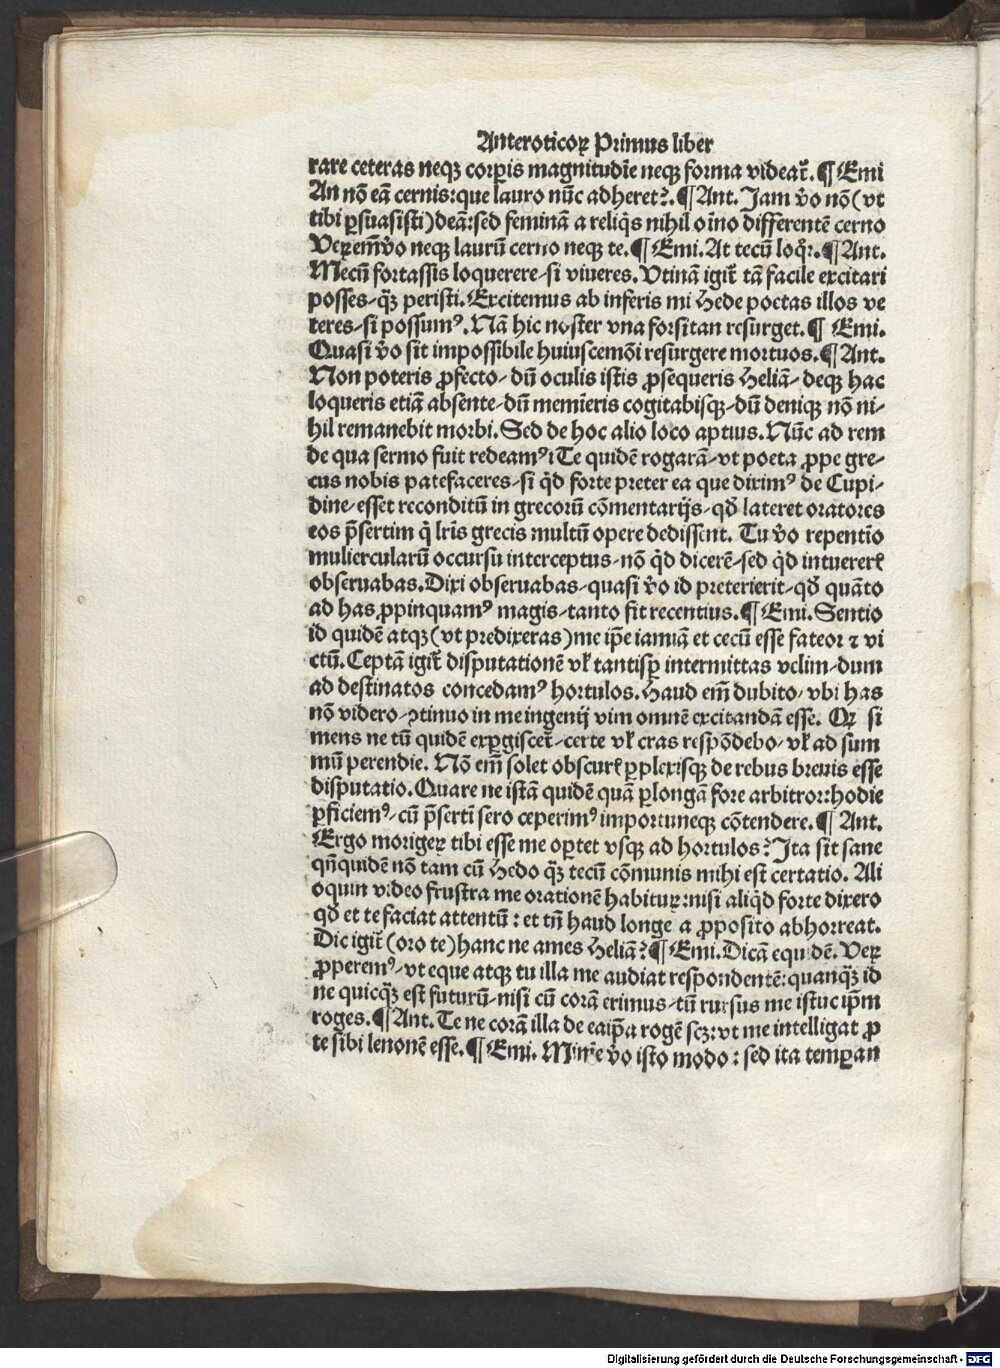 Anteroticoꝝ Primus liber
rare ceteras neqꝫ corꝑis magnitudīe neqꝫ forma videat᷑. ¶ Emi
An nō eā cernis: que lauro nūc adheret?. ¶ Ant. Jam v̄o nō (vt
tibi ꝑsuasisti) deā: sed feminā a reliq̄s nihil oīno differentē cerno
Veꝝem̄v̄o neqꝫ laurū cerno neqꝫ te. ¶ Emi. At tecū loq̄r. ¶ Ant.
Mecū fortassis loquerere / si viueres. Vtinā igit᷑ tā facile excitari
posses / q̄ꝫ peristi. Excitemus ab inferis mi Hede poetas illos ve
teres / si possumꝰ. Nā hic noster vna forsitan resurget. ¶ Emi.
Quasi v̄o sit impossibile huiuscemōi resurgere mortuos. ¶ Ant.
Non poteris ꝓfecto / dū oculis istis ꝓsequeris Heliā / deqꝫ hac
loqueris etiā absente / dū memīeris cogitabisqꝫ / dū deniqꝫ nō ni⸗
hil remanebit morbi. Sed de hoc alio loco aptius. Nūc ad rem
de qua sermo fuit redeamꝰ: Te quidē rogarā / vt poeta ꝓpe gre⸗
cus nobis patefaceres / si q̄d forte preter ea que diximꝰ de Cupi⸗
dine / esset reconditū in grecorū cōmentarijs / qd̄ lateret oratores
eos p̄sertim q̄ lr̄is grecis multū opere dedissent. Tu v̄o repentīo
muliercularū occursu interceptus / nō q̄d dicerē / sed q̄d intuererꝭ
obseruabas. Dixi obseruabas / quasi v̄o id preterierit / qd̄ quāto
ad has ꝓpinquamꝰ magis / tanto fit recentius. ¶ Emi. Sentio
id quidē atqꝫ (vt predixeras) me ip̄e iamiā et cecū esse fateor ⁊ vi
ctū. Ceptā igit᷑ disputationē vꝉ tantisꝑ intermittas velim / dum
ad destinatos concedamꝰ hortulos. Haud em̄ dubito / vbi has
nō videro / ꝯtinuo in me ingenij vim omnē excitandā esse. Qꝫ si
mens ne tū quidē exꝑgiscet᷑ / certe vꝉ cras respōdebo / vꝉ ad sum
mū perendie. Nō em̄ solet obscurꝭ ꝑplexisqꝫ de rebus breuis esse
disputatio. Quare ne istā quidē quā ꝑlongā fore arbitror: hodie
ꝑficiemꝰ / cū p̄sertī sero ceperimꝰ importuneqꝫ cōtendere. ¶ Ant.
Ergo morigeꝝ tibi esse me oꝑtet vsqꝫ ad hortulos? Ita sit sane
qn̄quidē nō tam cū Hedo q̄ꝫ tecū cōmunis mihi est certatio. Ali
oquin video frustra me orationē habituꝝ: nisi aliq̄d forte dixero
qd̄ et te faciat attentū: et tn̄ haud longe a ꝓposito abhorreat.
Dic igit᷑ (oro te) hanc ne ames Heliā? ¶ Emi. Dicā equidē. Veꝝ
ꝓperemꝰ / vt eque atqꝫ tu illa me audiat respondentē: quanq̄ꝫ id
ne quicq̄ꝫ est futurū / nisi cū corā erimus / tū rursus me istuc ip̄m
roges. ¶ Ant. Te ne corā illa de eaip̄a rogē scꝫ: vt me intelligat ꝓ
te sibi lenonē esse. ¶ Emi. Minīe v̄o isto modo: sed ita temꝑan
Digitalisierung gefördert durch die Deutsche Forschungsgemeinschaft - DFG